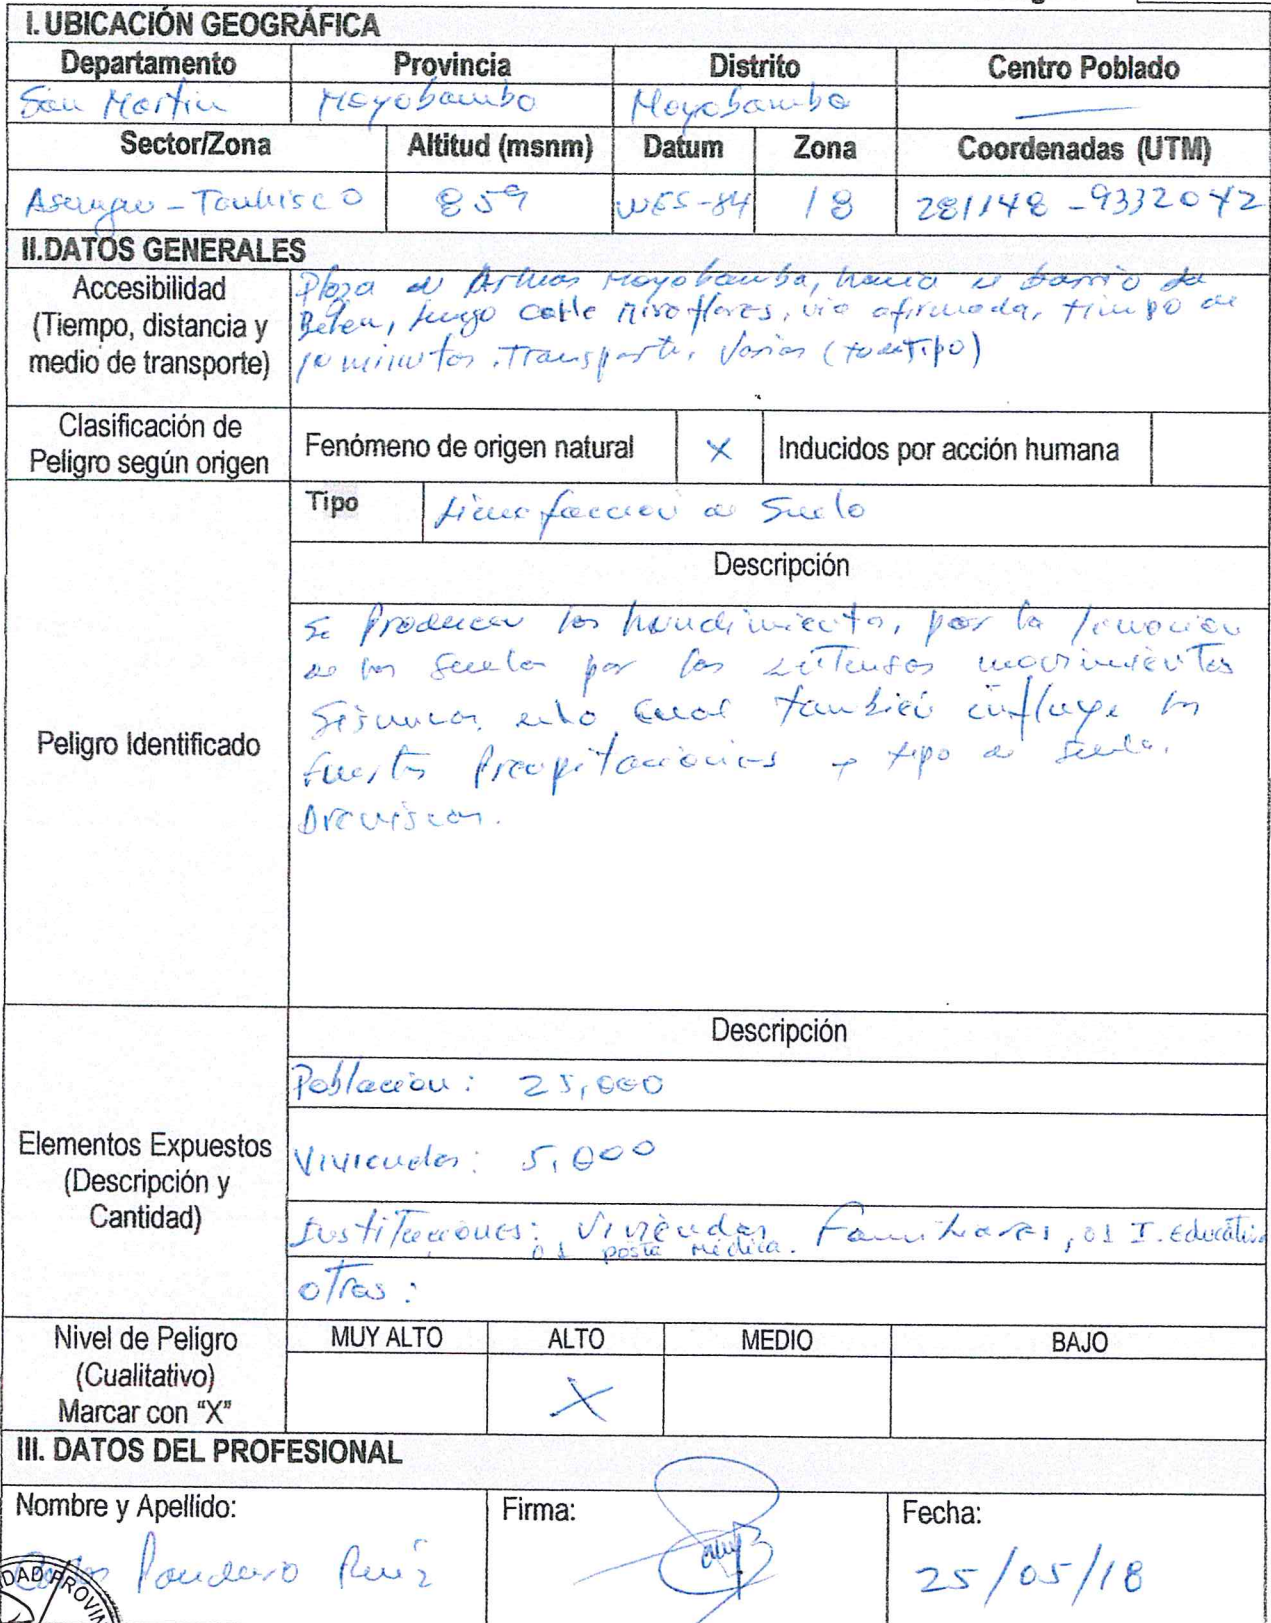 I. UBICACIÓN GEOGRÁFICA
Departamento Provincia Distrito Centro Poblado
San Martin Moyobamba Moyobamba —
Sector/Zona Altitud (msnm) Datum Zona Coordenadas (UTM)
859 WGS-84 18 281148 - 9332042
II.DATOS GENERALES
Accesibilidad
(Tiempo, distancia y
medio de transporte)
Plaza de Armas Moyobamba, hacia el barrio de
Belen, luego calle Miraflores, via afirmada, tiempo de
10 minutos. Transporte, Varios (todo tipo)
Clasificación de
Peligro según origen
Fenómeno de origen natural X Inducidos por acción humana
Peligro Identificado
Tipo Licuefaccion de Suelo
Descripción
Se Producen los hundimientos, por la
de los Suelos por los intensos movimientos
Sismicos, en lo cual tambien influye los
fuertes Precipitaciones y tipo de Suelo.
Areniscos.
Elementos Expuestos
(Descripción y
Cantidad)
Descripción
Poblacion: 25,000
Viviendas: 5,000
Instituciones: Viviendas Familiares, 01 I. Educativa
01 posta médica.
otras:
Nivel de Peligro
(Cualitativo)
Marcar con "X"
MUY ALTO ALTO MEDIO BAJO
X
III. DATOS DEL PROFESIONAL
Nombre y Apellido: Firma: Fecha:
Ruiz 25/05/18